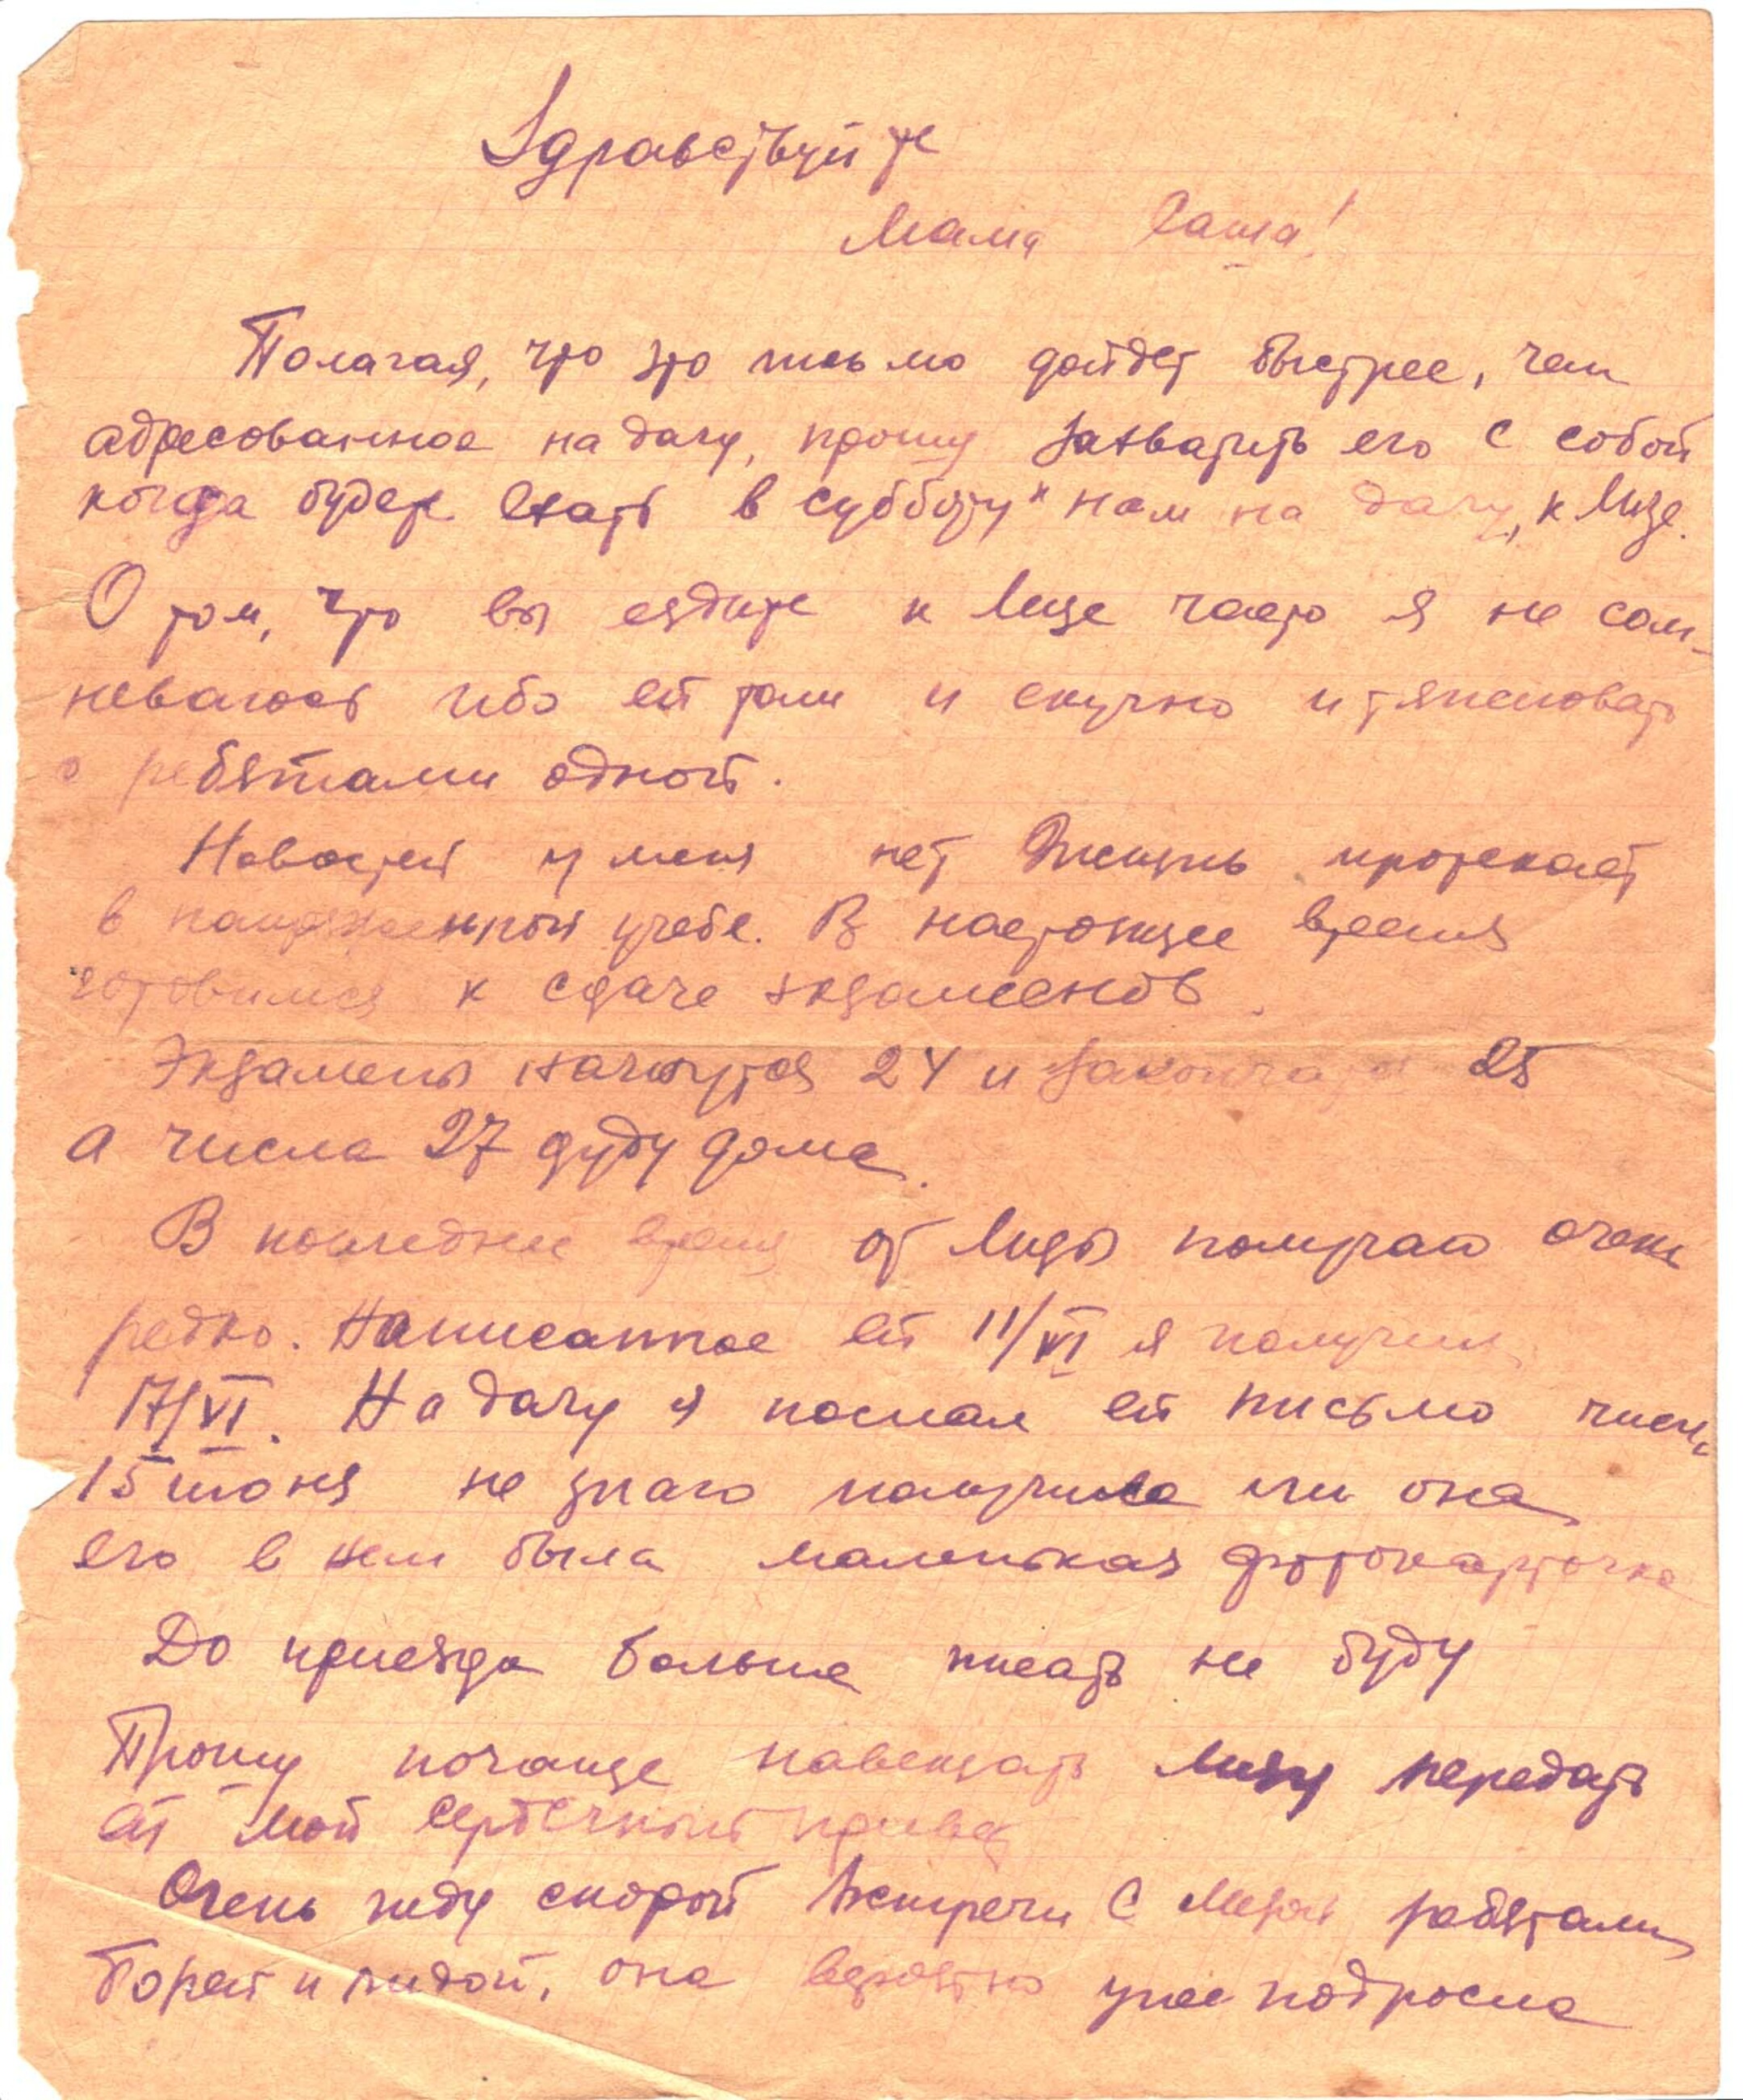 Здравствуйте
Мама Саша!
Полагая, что это письмо дойдет быстрее, чем
адресованное на дачу, прошу захватить его с собой
когда будете ехать в субботу к нам на дачу, к Лизе.
О том, что вы ездите к Лизе часто я не сом-
неваюсь ибо ей там и скучно и тяжеловато
с ребятами одной.
Новостей у меня нет Жизнь протекает
в напряженной учебе. В настоящее время
готовимся к сдаче экзаменов.
Экзамены начнутся 24 и закончатся 25
а числа 27 буду дома.
В последнее время от Лизы получаю очень
редко. Написанное ей 11/VI я получил
17/VI. На дачу я послал ей письмо числа
15 июня не знаю получила ли она
его в нем была маленькая фотокарточка
До приезда больше писать не буду
Прошу почаще навещать Лизу передать
ей мой сердечный привет
Очень жду скорой встречи с Лизой ребятами
Борей и Лидой, она вероятно уже подросла